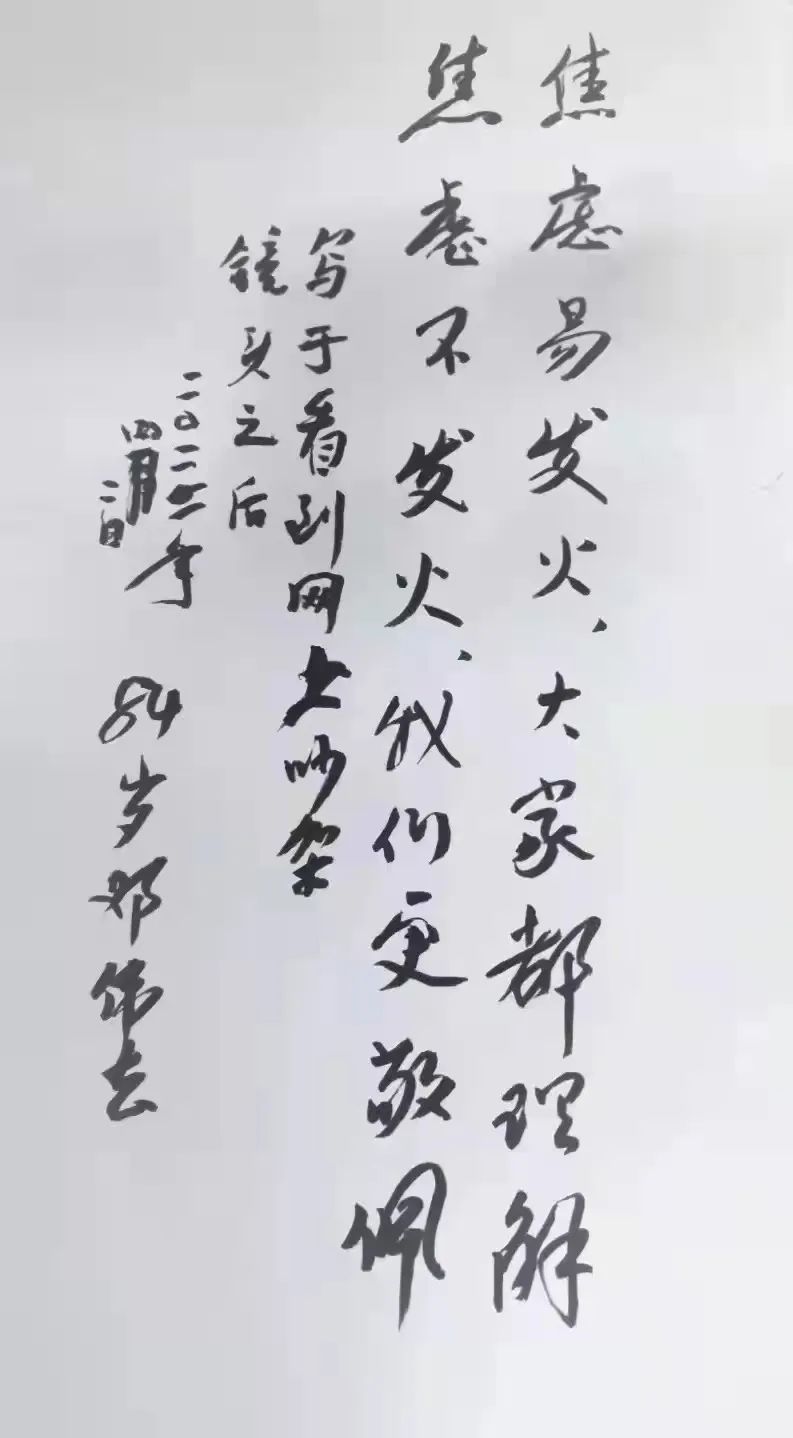 焦虑易发火、大家都理解
焦虑不发火、我们更敬佩
写于看到网上吵架
镜头之后
二〇二二年
四月
二日
84岁邓伟志